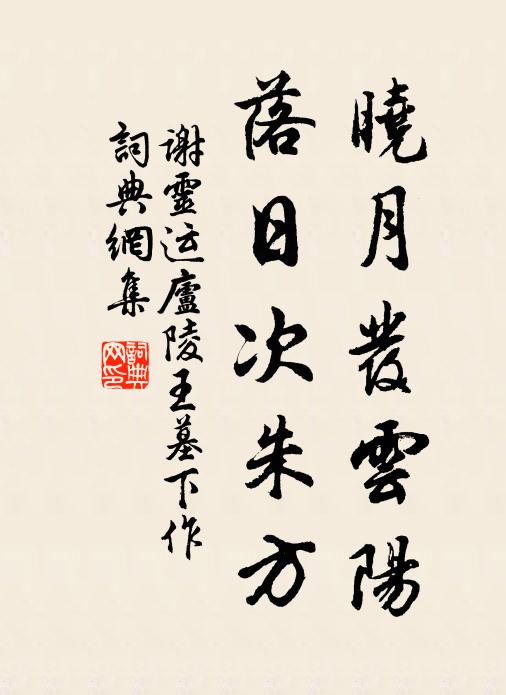 曉月發雲陽
落日次朱方
谢靈运廬陵王墓下作
詞典網集
詞典网印